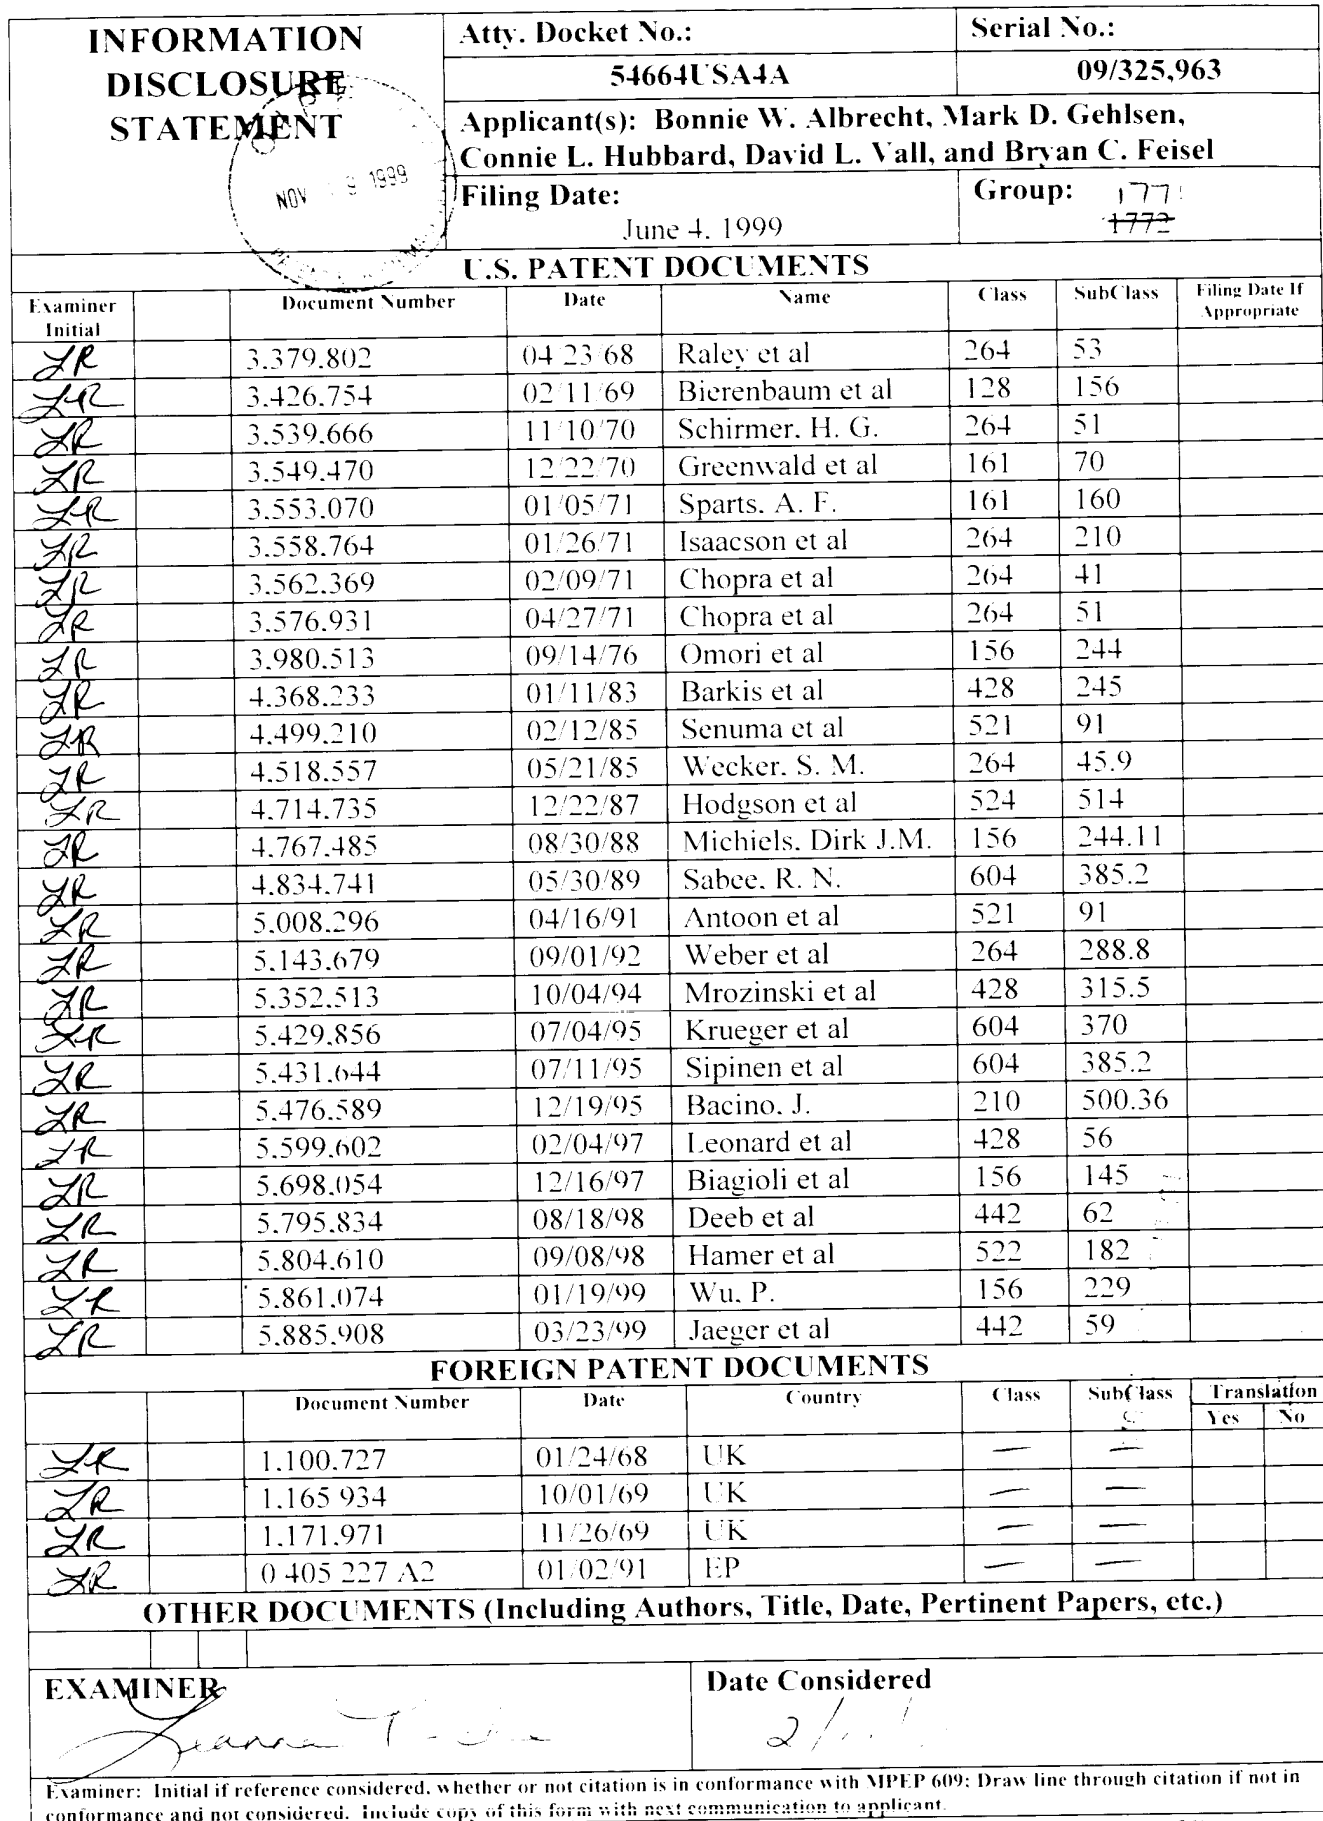 INFORMATION
DISCLOSURE
STATEMENT
NOV 9 1999
Atty. Docket No.:
54664USA4A
Serial No.:
09/325,963
Applicant(s): Bonnie W. Albrecht, Mark D. Gehlsen,
Connie L. Hubbard, David L. Vall, and Bryan C. Feisel
Filing Date:
June 4, 1999
Group: 177
1772
U.S. PATENT DOCUMENTS
Examiner Initial Document Number Date Name Class SubClass Filing Date If Appropriate
LR 3,379,802 04/23/68 Raley et al 264 53
LR 3,426,754 02/11/69 Bierenbaum et al 128 156
LR 3,539,666 11/10/70 Schirmer, H. G. 264 51
LR 3,549,470 12/22/70 Greenwald et al 161 70
LR 3,553,070 01/05/71 Sparts, A. F. 161 160
LR 3,558,764 01/26/71 Isaacson et al 264 210
LR 3,562,369 02/09/71 Chopra et al 264 41
LR 3,576,931 04/27/71 Chopra et al 264 51
LR 3,980,513 09/14/76 Omori et al 156 244
LR 4,368,233 01/11/83 Barkis et al 428 245
LR 4,499,210 02/12/85 Senuma et al 521 91
LR 4,518,557 05/21/85 Wecker, S. M. 264 45.9
LR 4,714,735 12/22/87 Hodgson et al 524 514
LR 4,767,485 08/30/88 Michiels, Dirk J.M. 156 244.11
LR 4,834,741 05/30/89 Sabee, R. N. 604 385.2
LR 5,008,296 04/16/91 Antoon et al 521 91
LR 5,143,679 09/01/92 Weber et al 264 288.8
LR 5,352,513 10/04/94 Mrozinski et al 428 315.5
LR 5,429,856 07/04/95 Krueger et al 604 370
LR 5,431,644 07/11/95 Sipinen et al 604 385.2
LR 5,476,589 12/19/95 Bacino, J. 210 500.36
LR 5,599,602 02/04/97 Leonard et al 428 56
LR 5,698,054 12/16/97 Biagioli et al 156 145
LR 5,795,834 08/18/98 Deeb et al 442 62
LR 5,804,610 09/08/98 Hamer et al 522 182
LR 5,861,074 01/19/99 Wu, P. 156 229
LR 5,885,908 03/23/99 Jaeger et al 442 59
FOREIGN PATENT DOCUMENTS
Document Number Date Country Class SubClass Translation
Yes No
LR 1,100,727 01/24/68 UK — —
LR 1,165 934 10/01/69 UK — —
LR 1,171,971 11/26/69 UK — —
LR 0 405 227 A2 01/02/91 EP — —
OTHER DOCUMENTS (Including Authors, Title, Date, Pertinent Papers, etc.)
EXAMINER
Leanna
Date Considered
2/
Examiner: Initial if reference considered, whether or not citation is in conformance with MPEP 609; Draw line through citation if not in
conformance and not considered. Include copy of this form with next communication to applicant.